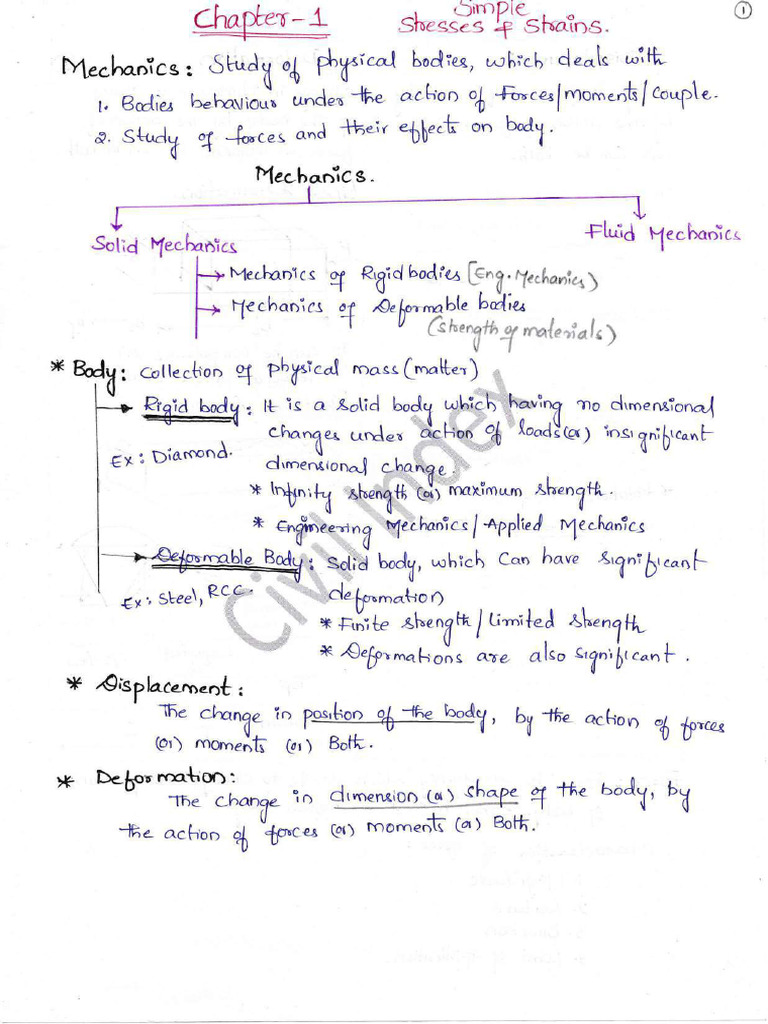 Chapter-1
Simple
Stresses & Strains.
1
Mechanics: Study of physical bodies, which deals with
1. Bodies behaviour under the action of Forces/moments/couple.
2. Study of forces and their effects on body.
Mechanics.
Solid Mechanics
Fluid Mechanics
Mechanics of Rigid bodies (Eng. Mechanics)
Mechanics of Deformable bodies
(strength of materials)
* Body: collection of physical mass (matter)
Rigid body: It is a solid body which having no dimensional
changes under action of loads (or) insignificant
Ex: Diamond.
dimensional change.
* Infinity strength (or) maximum strength.
* Engineering Mechanics/Applied Mechanics
Deformable Body: Solid body, which can have significant
Ex: Steel, RCC.
deformation
* Finite strength/limited strength
* Deformations are also significant.
* Displacement:
The change in position of the body, by the action of forces
(or) moments (or) Both.
* Deformation:
The change in dimension (or) shape of the body, by
the action of forces (or) moments (or) Both.
Civil Index